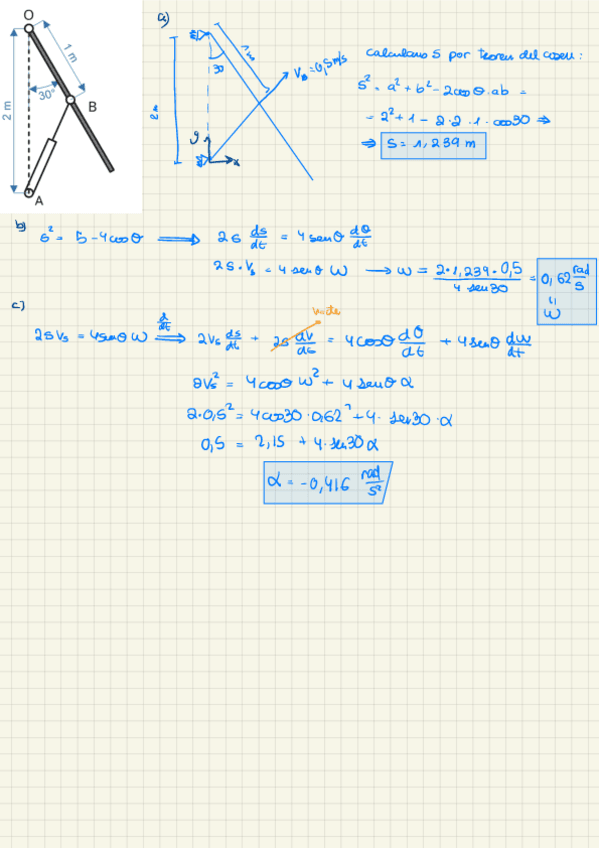 O
1 m
2 m
30°
B
A
a)
1m
30
V_B = 0,5 m/s
2m
y
x
Calculamos s por teorema del coseno:
s² = a² + b² - 2cosθ·ab =
= 2² + 1 - 2·2·1·cos30 ⇒
⇒ s = 1,239 m
b) s² = 5 - 4cosθ ⟹ 2s ds/dt = 4senθ dθ/dt
2s·Vs = 4senθ ω → ω = 2·1,239·0,5 / 4 sen30 = 0,62 rad/s
= ω
c)
2sVs = 4senθ ω ⟹ d/dt 2Vs ds/dt + 2s dv/dt = 4cosθ dθ/dt + 4senθ dω/dt
2Vs² = 4cosθ ω² + 4senθ α
2·0,5² = 4cos30·0,62² + 4·sen30·α
0,5 = 2,15 + 4·sen30 α
α = -0,416 rad/s²